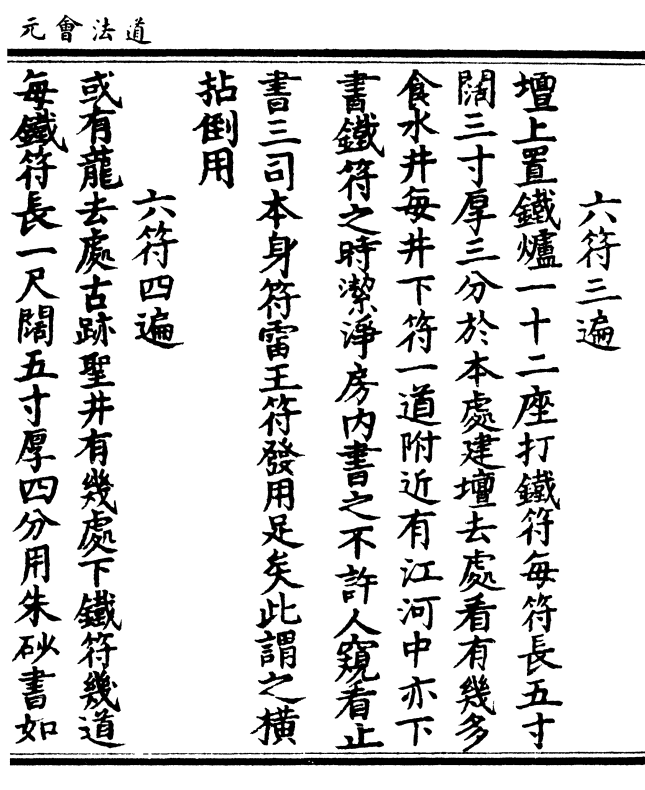 道法會元
六符三遍
壇上置鐵爐一十二座打鐵符每符長五寸
闊三寸厚三分於本處建壇去處看有幾多
食水井每井下符一道附近有江河中亦下
書鐵符之時潔淨房内書之不許人窺看止
書三司本身符雷王符發用足矣此謂之橫
拈倒用
六符四遍
或有龍去處古跡聖井有幾處下鐵符幾道
每鐵符長一尺闊五寸厚四分用朱砂書如